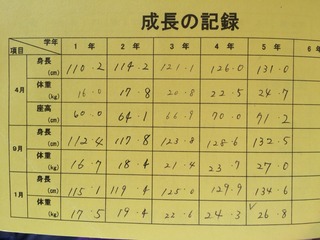 成長の記録
項目 学年 1 年 2 年 3 年 4 年 5 年 6 年
4月 身長(cm) 110.2 114.2 121.1 126.0 131.0
体重(kg) 16.0 17.8 20.8 22.5 24.7
座高(cm) 60.0 64.1 66.9 70.0 71.2
9月 身長(cm) 112.4 117.8 123.8 128.6 132.5
体重(kg) 16.7 18.4 21.4 23.7 27.0
1月 身長(cm) 115.1 119.4 125.0 129.9 134.6
体重(kg) 17.5 19.4 22.6 24.3 26.8